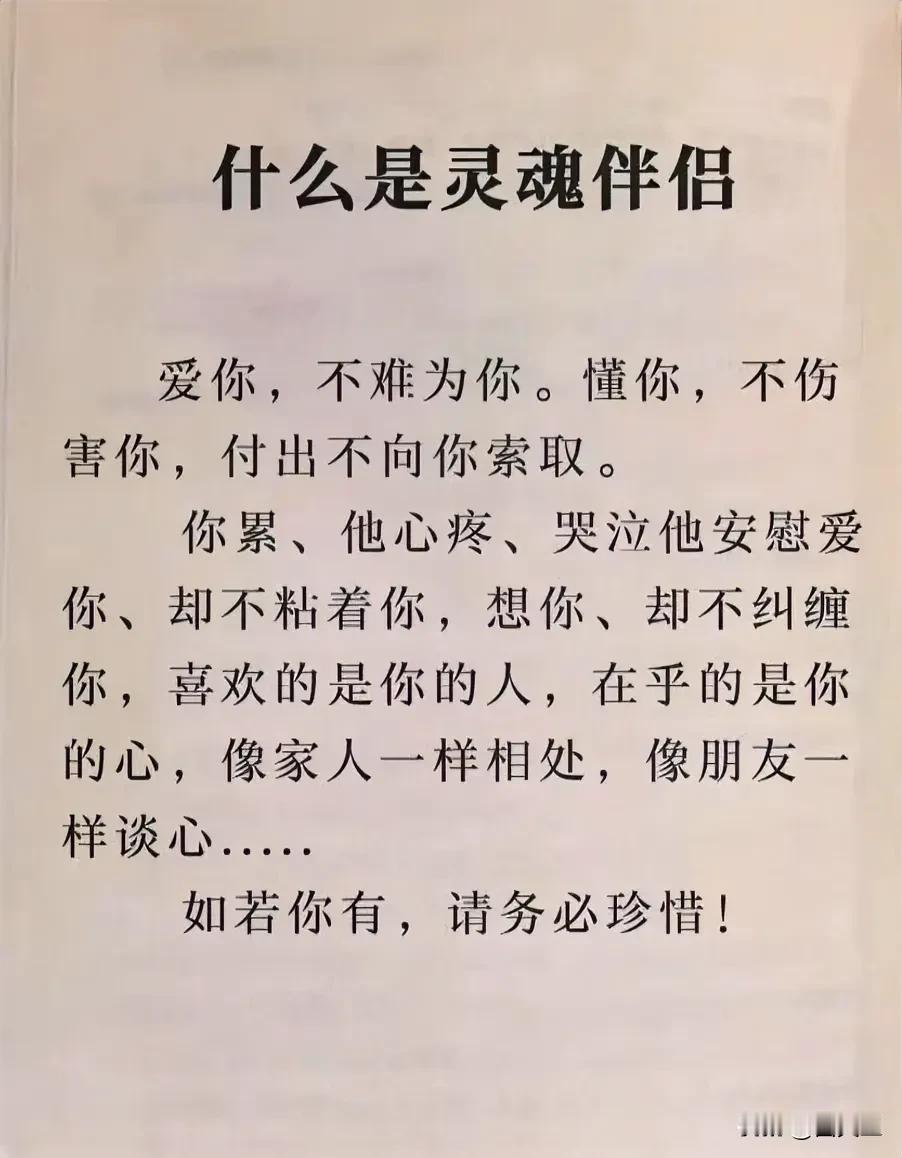 什么是灵魂伴侣
爱你，不难为你。懂你，不伤
害你，付出不向你索取。
你累、他心疼、哭泣他安慰爱
你、却不粘着你，想你、却不纠缠
你，喜欢的是你的人，在乎的是你
的心，像家人一样相处，像朋友一
样谈心.....
如若你有，请务必珍惜！